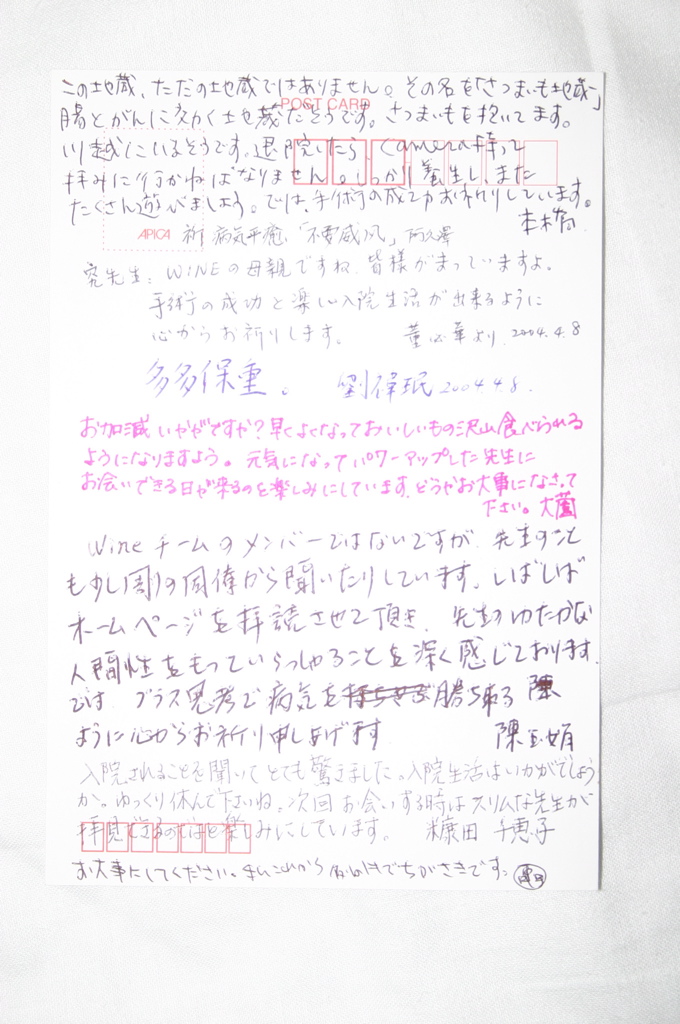 この地蔵、ただの地蔵ではありません。その名を「さつまいも地蔵」
腸とがんに効く地蔵だそうです。さつまいもを抱いてます。
POST CARD
川越にいるそうです。退院したら、Camera持って
拝みに行かねばなりません。しっかり養生し、また
たくさん遊びましょう。では、手術の成功お祈りしています。
APICA
祈 病気平癒、「不要威風」
先生: WINEの母親ですね 皆様がまっていますよ。
手術の成功と楽しい入院生活が出来るように
心からお祈りします。 董 華より 2004.4.8
多多保重。 劉偉珉 2004.4.8.
お加減いかがですか?早くよくなっておいしいもの沢山食べられる
ようになりますよう。元気になってパワーアップした先生に
お会いできる日が来るのを楽しみにしています。どうぞお大事になさって
下さい。大薗
Wineチームのメンバーではないですが、先生のこと
も少し周りの同僚から聞いたりしています。しばしば
ホームページを拝読させて頂き、先生のゆたかな
人間性をもっていらっしゃることを深く感じております。
では、プラス思考で病気を 勝ち来る
ように心からお祈り申しあげます 陳玉娟
入院されることを聞いてとても驚きました。入院生活はいかがでしょう
か。ゆっくり休んで下さいね。次回お会いする時はスリムな先生が
拝見できるのではと楽しみにしています。 糠田 千恵子
お大事にしてください。